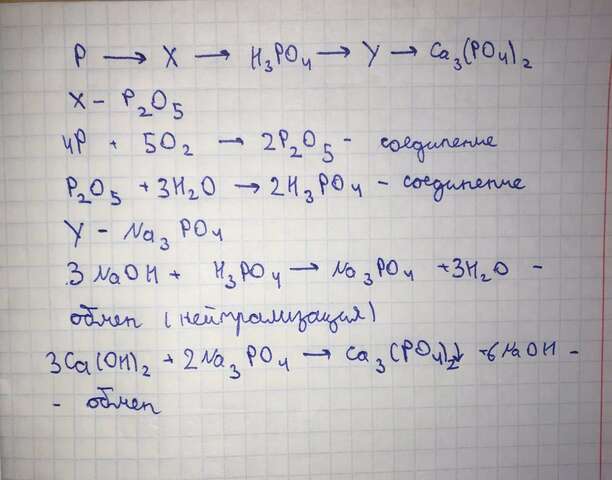 P → X → H₃PO₄ → Y → Ca₃(PO₄)₂
X – P₂O₅
4P + 5O₂ → 2P₂O₅ – соединение
P₂O₅ + 3H₂O → 2H₃PO₄ – соединение
Y – Na₃PO₄
3NaOH + H₃PO₄ → Na₃PO₄ + 3H₂O –
обмен (нейтрализация)
3Ca(OH)₂ + 2Na₃PO₄ → Ca₃(PO₄)₂↓ + 6NaOH –
– обмен